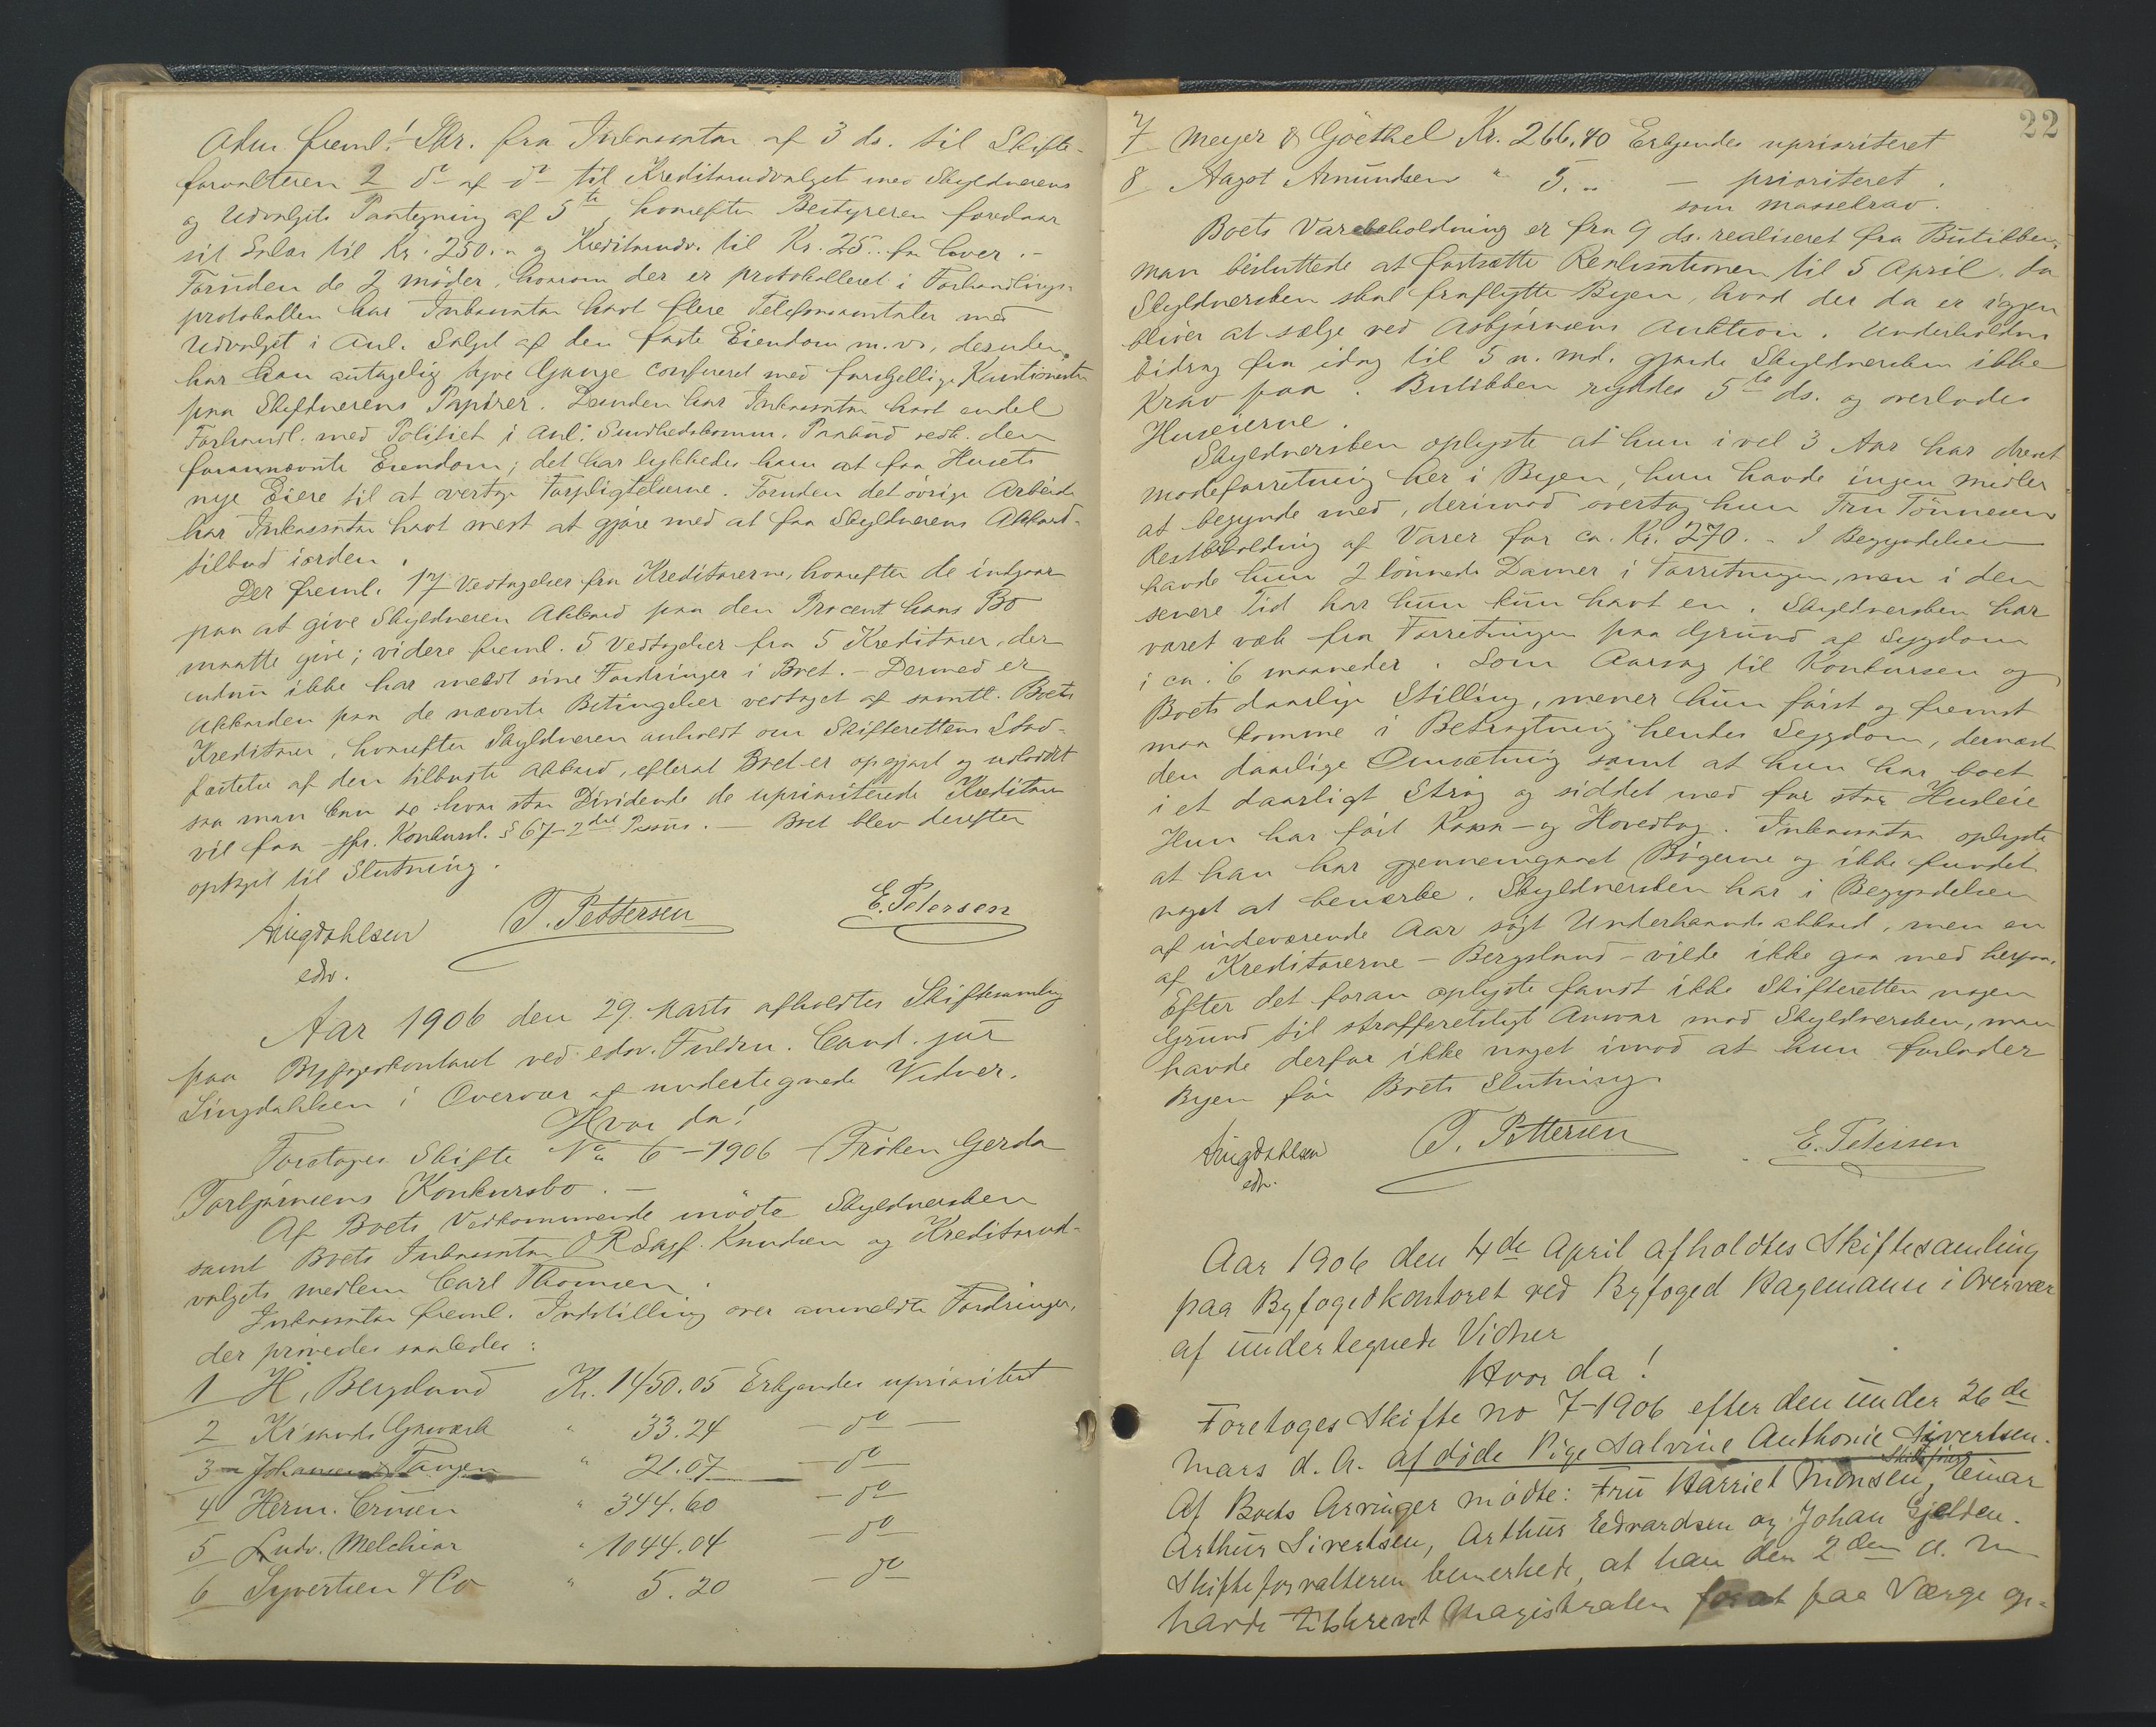 Adm freml. Skr. fra Inkassator af 3 ds. til Skifte-
forvalteren 2 do af do til Kreditorudvalget med Skyldnerens
og Udvalgets Paategning af 5te, hvorefter Bestyreren foreslaar
sit Salær til Kr. 250.. og Kreditorudv. til Kr. 25.. for hver.-
Foruden de 2 møder, hvorom der er protokolleret i Forhandlings-
protokollen har Inkassator havt flere Telefonsamtaler med
Udvalget i Anl. Salget af den faste Eiendom m.v., desuden
har han antagelig tyve Gange confereret med forskjellige Kautionister
paa Skyldnerens Papirer. Desuden har Inkassator havt endel
Forhandl. med Politiet i Anl. Sundhedskomm. Paabud vedk. den
forannævnte Eiendom; det har lykkedes ham at faa Husets
nye Eiere til at overtage Forpligtelserne. Foruden det øvrige Arbeide
har Inkassator havt mest at gjøre med at faa Skyldnerens Akkord-
tilbud iorden.
Der freml. 17 Vedtagelser fra Kreditorerne, hvorefter de indgaar
paa at give Skyldneren Akkord paa den Procent hans Bo
maatte give; videre freml. 5 Vedtagelser fra 5 Kreditorer, der
endnu ikke har meldt sine Fordringer i Boet. - Dermed er
Akkorden paa de nævnte Betingelser vedtaget af samtl. Boets
Kreditorer, hvorefter Skyldneren anholdt om Skifterettens Stad-
fæstelse af den tilbudte Akkord, efterat Boet er opgjort og udloddet
saa man kan se hvor stor Dividende de uprioriterede Kreditorer
vil faa jfr. Konkursl. § 67 - 2det Passus. - Boet blev derefter
optaget til Slutning.
Lingdahlsen T. Pettersen E. Petersen
edsv.
Aar 1906 den 29. Marts afholdtes Skiftesamling
paa Byfogedkontoret ved edsv. Fuldm. Cand. jur
Lingdahlsen i Overvær af undertegnede Vidner.
Hvor da!
Foretoges Skifte No 6 - 1906 - Frøken Gerda
Torbjørnsens Konkursbo. -
Af Boets Vedkommende mødte Skyldnersken
samt Boets Inkassator O R Sagf. Knudsen og Kreditorud-
valgets medlem Carl Thomsen.
Inkassator freml. Indstilling over anmeldte Fordringer,
der prøvedes saaledes:
1 H. Bergslund Kr. 1450.05 Erkjendes uprioritert
2 Kr'sands Gasværk " 33.24 - do -
3 Johannes Tangen " 21.07 - do
4 Herm. Crusen " 344.60 - do
5 Ludv. Melchior " 1044.04 - do
6 Syvertsen & Co " 5.20 - do
22
7 Meyer & Göethel Kr. 266.40 Erkjendes uprioriteret
8 Aagot Amundsen " 5.. - prioriteret.
som massekrav.
Boets Varebeholdning er fra 9 ds. realiseret fra Butikken,
man besluttede at fortsætte Realisationen til 5 April, da
Skyldnersken skal fraflytte Byen, hvad der da er igjen
bliver at sælge ved Asbjørnsens Auktion. Underholdns
bidrag fra idag til 5 n. md. gjorde Skyldnersken ikke
Krav paa. Butikken ryddes 5te ds. og overlades
Huseierne.
Skyldnersken oplyste at hun i vel 3 Aar har drevet
modeforretning her i Byen, hun havde ingen midler
at begynde med, derimod overtog hun Fru Tønnesens
Restbeholdning af Varer for ca. Kr. 270.- I Begyndelsen
havde hun 2 lønnede Damer i Forretningen, men i den
senere Tid har hun kun havt en. Skyldnersken har
været væk fra Forretningen paa Grund af Sygdom
i ca. 6 maaneder. Som Aarsag til Konkursen og
Boets daarlige Stilling, mener hun først og fremst
maa komme i Betragtning hendes Sygdom, dernæst
den daarlige Omsætning samt at hun har boet
i et daarligt Strøg og siddet med for stor Husleie
Hun har ført Kassa- og Hovedbog. Inkassator oplyste
at han har gjennemgaaet Bøgerne og ikke fundet
noget at bemerke. Skyldnersken har i Begyndelsen
af indeværende Aar søgt Underhaandsakkord, men en
af Kreditorerne - Bergslund - vilde ikke gaa med herpaa.
Efter det foran oplyste fandt ikke Skifteretten nogen
Grund til strafferetsligt Ansvar mod Skyldnersken, man
havde derfor ikke noget imod at hun forlader
Byen før Boets Slutning.
Lingdahlsen T. Pettersen E. Petersen
edsv.
Aar 1906 den 4de April afholdtes Skiftesamling
paa Byfogedkontoret ved Byfoged Hagemann i Overvær
af undertegnede Vidner
Hvor da!
Foretoges Skifte no 7-1906 efter den under 26de
Mars d. A. afdøde Pige Salvine Anthonie Sivertsen.
Af Boets Arvinger mødte: Fru Harriet Monsen, Skibsfører Einar
Arthur Sivertsen, Arthur Edvardsen og Johan Gjelden.
Skifteforvalteren bemerkede, at han den 2den d. M
havde tilskrevet Magistraten for at faa Værge op-